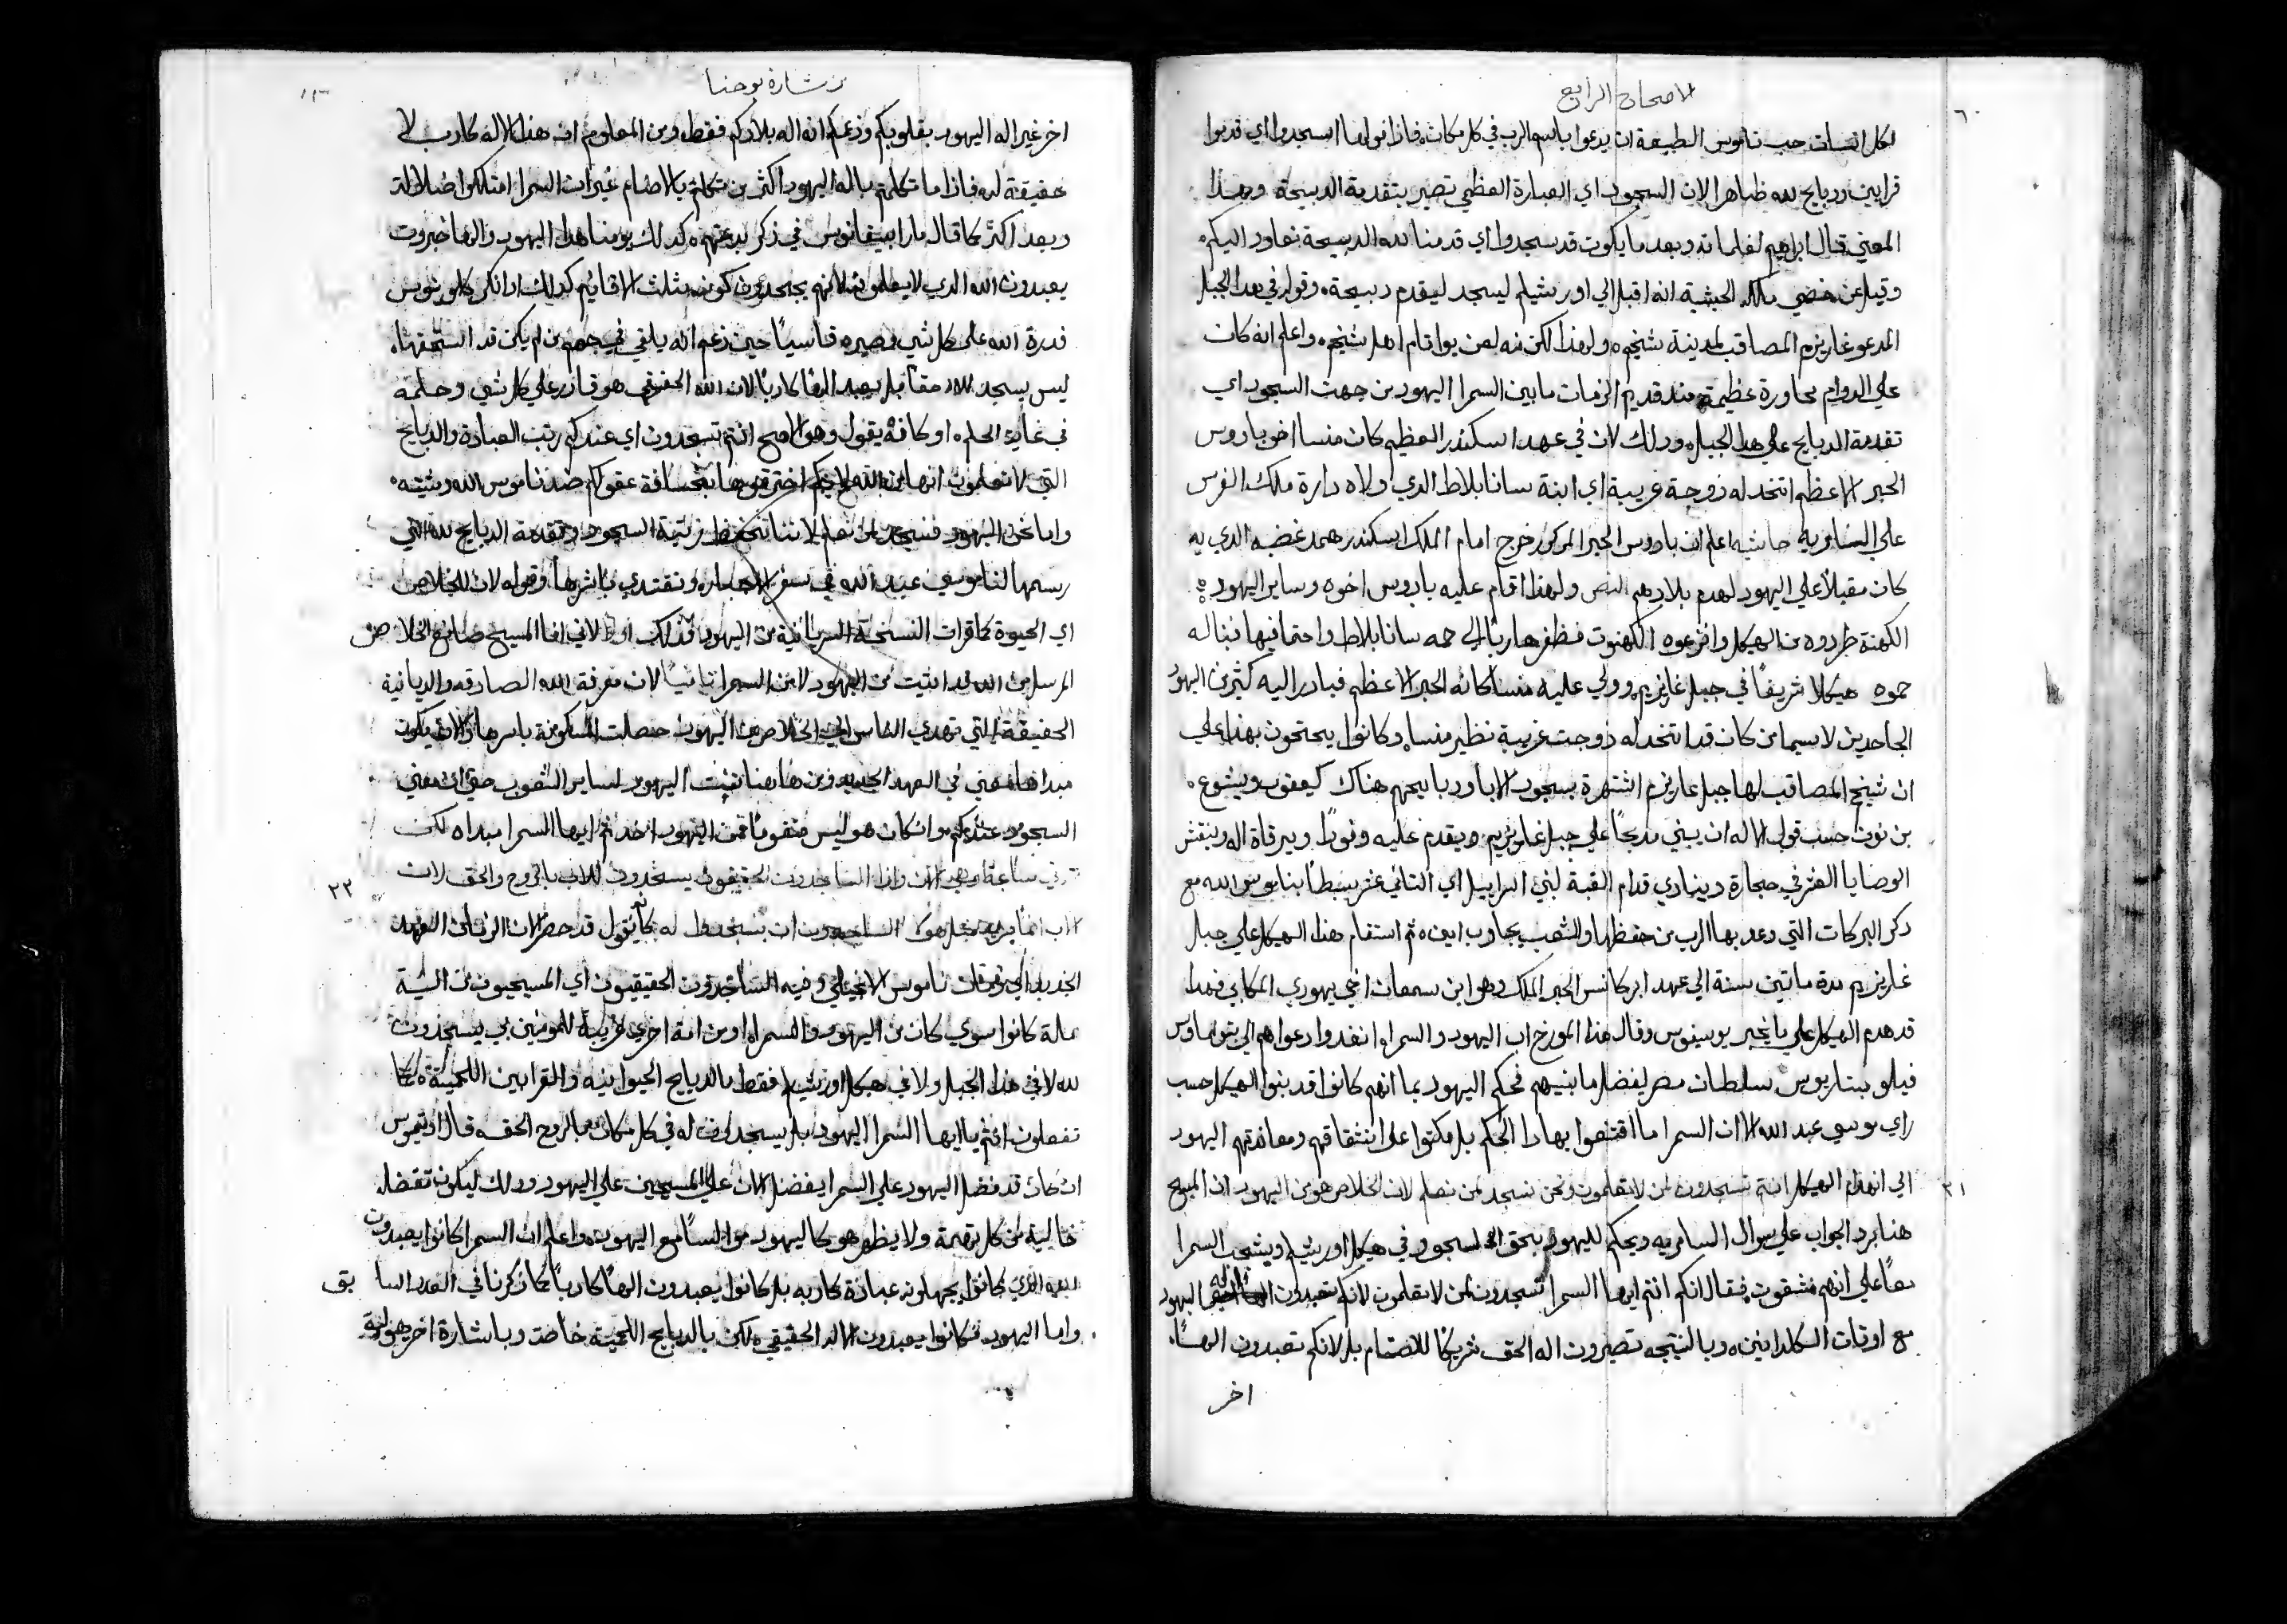 الاصحاح الرابع
٦٠
لكل انسان حسب ناموس الطبيعة ان يدعوا باسم الرب في كل مكان، فاذا قولها اسجدوا اي قدموا
قرابين ودبايح لله ظاهرا لان السجود اي العبارة العظمي تصير بتقدمة الدبيحة وهذا
المعني قال ابراهيم لغلمانه وبعد ما يكون قد سجدوا اي قدمنا لله الدبيحة نعاود اليكم
وقيل عن خصي ملكة الحبشة انه اقبل الي اورشليم ليسجد ليقدم دبيحة، وقوله في هدا الجبل
المدعو غاريزيم المصاقب لمدينة شخيم، ولهذا لكن منه لهن يواقام اهل شخيم، واعلم انه كان
علي الدوام محاورة عظيمة مند قديم الزمان ما بين السمرا اليهود من جهت السجود اي
تقدمة الدبايح علي هدا الجبل، ودلك لان في عهد اسكندر العظيم كان منسا اخو يادوس
الحبر الاعظم اتخد له زوجة غريبة اي ابنة سانابلاط الدي ولاه دارة ملك الفرس
علي السامرية حاشيه اعلم ان يادوس الحبر المدكور خرج امام الملك اسكندر همد غضبه الدي به
كان مقبلاً علي اليهود لهدم بلادهم النص ولهذا اقام عليه يادوس اخوه وساير اليهود
الكهنة طردوه من الهيكل وانزعوه الكهنوت فظفر هاربًا الي حمه سانابلاط واحتما فيها فبنا له
حموه هيكلا شريفًا في جبل غاريزيم، وولي عليه منسا كانه الحبر الاعظم فبادر اليه كثير من اليهود
الجاحدين لاسيما من كان قد اتخد له زوجت غريبة نظير منسا، وكانوا يحتجون بهذا علي
ان شخيم المصاقب لها جبل غاريزيم اشتهرة بسجود الابا ودبايحهم هناك كيعقوب ويشوع
بن نون حسب قول الاله ان يبني مدبحًا علي جبل غاريزيم ويقدم عليه وقودًا ويرقاه اله وينقش
الوصايا العشر في حجارة وينادي قدام القبة لبني اسراييل اي التاني عشر سبطًا بناموس الله مع
دكر البركات التي وعد بها الرب من حفظها والشعب يجاوب امين، ثم استقام هدا الهيكل علي جبل
غاريزيم مدة ماتين سنة الي عهد ايركانس الحبر الملك وهو ابن سمعان اخي يهودي المكابي فهدا
قد هدم الهيكل علي ما يخبر يوسيفوس وقال هذا المورخ ان اليهود والسمرا انفدوا دعواهم الي بتولماوس
فيلوميتاريوس سلطان مصر ليفصل ما بينهم فحكم اليهود بما انهم كانوا قد بنوا الهيكل حسب
راي موسي عبد الله الا ان السمرا ما اقتنعوا بهادا الحكم بل مكتوا علي انشقاقهم ومعاندتهم اليهود
٢١
الي انهدام الهيكل انتم تسجدون لمن لا تعلمون ونحن نسجد لمن نعلم لان الخلاص هو من اليهود ان المسيح
هنا يرد الجواب علي سوال السامريه ويحكم لليهود بحق السجود في هيكل اورشليم ويشجب السمرا
معًا علي انهم منشقون، فقال انكم انتم ايها السمرا تسجدون لمن لا تعلمون لانكم تعبدون اله اليهود
مع اوتان الكلدانيين، وبالنتيجه تصيرون اله الحق شريكًا للاصنام بل لانكم تعبدون الهًا
اخر
بشارة يوحنا
اخر غير اله اليهود بقلوبكم وزعمكم انه اله بلادكم فقط، ومن المعلوم ان هذا الاله كادب لا
حقيقة له، فاذا ما تكلمتم باله اليهود اكثر من تكلمتم بالاصنام غير ان السمرا امتلكوا ضلالة
وبعد اكتر كما قال مار ابيفانوس في ذكر بدعتهم، كدلك يومنا هدا اليهود والها خبروت
يعبدون الله الدي لا يعلمونه لانهم يجحدون كونه مثلث الاقانيم كدلك ادا انكر كلوينوس
قدرة الله علي كل شي وصيره قاسيًا حين زعم انه يلقي في جهنم من لم يكن قد استحقها
ليس يسجد لله حقًا بل يعبد الهًا كادبًا لان الله الحقيقي هو قادر علي كل شي وحلمه
في غاية الحلم، او كانه يقول وهو الاصح انتم تسجدون اي عندكم رتب العبادة والدبايح
التي لا تعلمون انها من الله لانكم اخترعتوها بسخافة عقولكم ضد ناموس الله ومشيته
واما نحن اليهود فنسجد لمن نعلم لاننا نحفظ رتبة السجود وتقدمة الدبايح لله التي
رسمها لنا موسي عبد الله في سفر الاحبار، ونقتدي باثرها وقوله لان الخلاص
اي الحيوة كما قرات النسخة السريانية من اليهود فدلك اولا لاني انا المسيح صانع الخلاص
المرسل من الله قد اتيت من اليهود لا من السمرا ثانيًا لان معرفة الله الصادقه والديانية
الحقيقة التي تهدي الناس الي الخلاص من اليهود حصلت المسكونة باسرها والان يكون
مبداها يعني في العهد الجديد ومن هاهنا تثبت اليهود لساير الشعوب حتي ان معني
السجود عندكم وان كان هو ليس متقومًا فمن اليهود اخدتم ايها السمرا مبداه لكن
٢٣
تاتي ساعة وهي الان واذا الساجدون الحقيقون يسجدون للاب بالروح والحق لان
الاب انما يريد مثل هولا الساجدون ان يسجدوا له كانه يقول قد حضر الان الزمان العهد
الجديد اي زمان ناموس الانجيلي وفيه الساجدون الحقيقيون اي المسيحيون من اية
ملة كانوا سوي كان من اليهود والسمرا او من امة اخري غريبة للمومنين بي يسجدون
لله لا في هذا الجبل ولا في هيكل اورشليم فقط بالدبايح الحيوانيه والقرابين اللحمية كما
تفعلون انتم ياايها السمرا اليهود بل يسجدون له في كل مكان بالروح الحق، قال اوتيموس
ان كان قد فضل اليهود علي السمرا يفضل الان علي المسيحيين علي اليهود ودلك ليكون تفضله
خالية من كل تهمة ولا يظهر هو كاليهود موالسًا مع اليهود، واعلم ان السمرا كانوا يعبدون
الله الذي كانوا يجهلونه عبادة كادبه بل كانوا يعبدون الهًا كادبًا كما ذكرنا في العدد السابق
واما اليهود فكانوا يعبدون الاله الحقيقي، لكن بالدبايح اللحمية خاصة وباشارة اخر